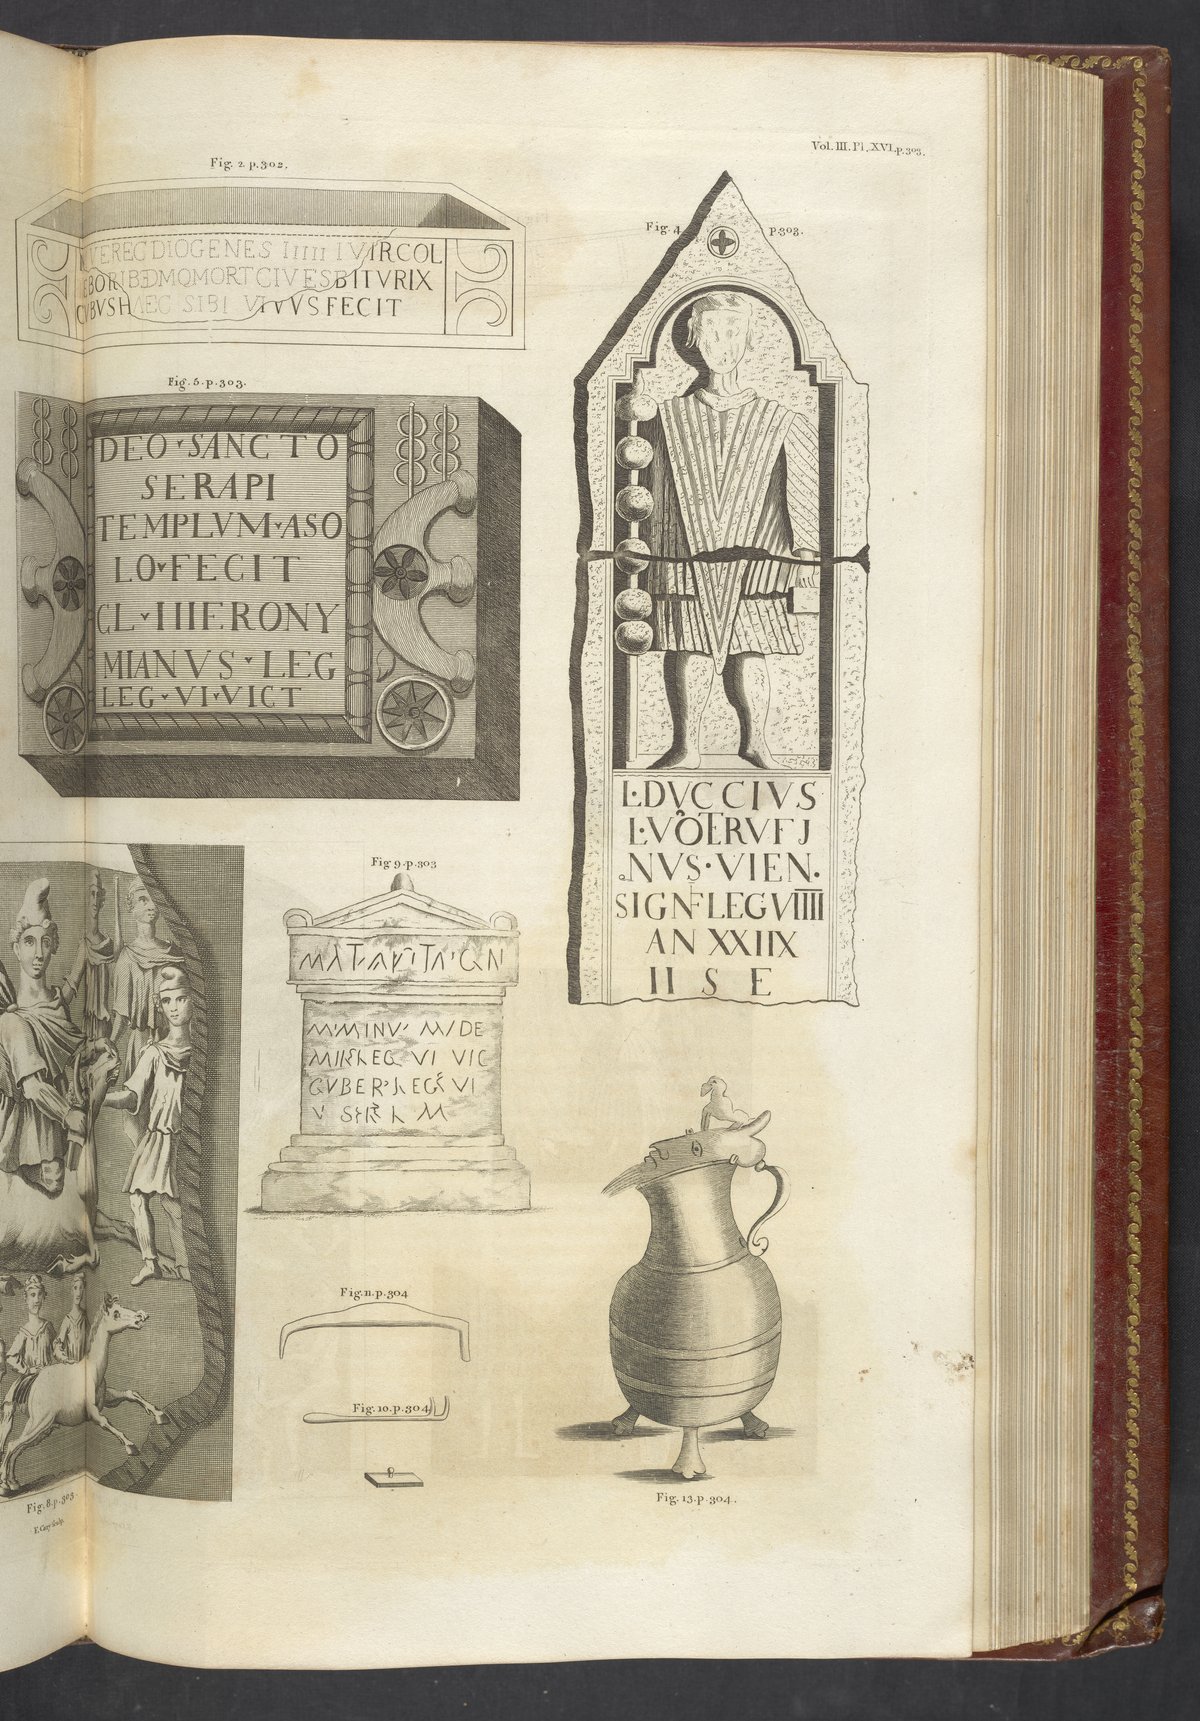 Vol. III. Pl. XVI. p. 303.
Fig. 2. p. 302.
VEREC DIOGENES IIIIII IVIR COL
EBOR IBƎD MQ MORT CIVES BITVRIX
CVBVS HAEC SIBI VIVVS FECIT
Fig. 5. p. 303.
DEO SANCTO
SERAPI
TEMPLVM ASO
LO FECIT
CL IIIERONY
MIANVS LEG
LEG VI VICT
Fig. 4. p. 303.
L·DVCCIVS
L·VOTERVFJ
NVS·VIEN·
SIGNF LEG VIIIII
AN XXIIX
II S E
Fig 9. p. 303
M·MINV· M/DE
LEG VI VIC
GVBER LEG VI
Fig. 8. p. 303.
Fig. 11. p. 304
Fig. 10. p. 304
Fig. 13. p. 304.